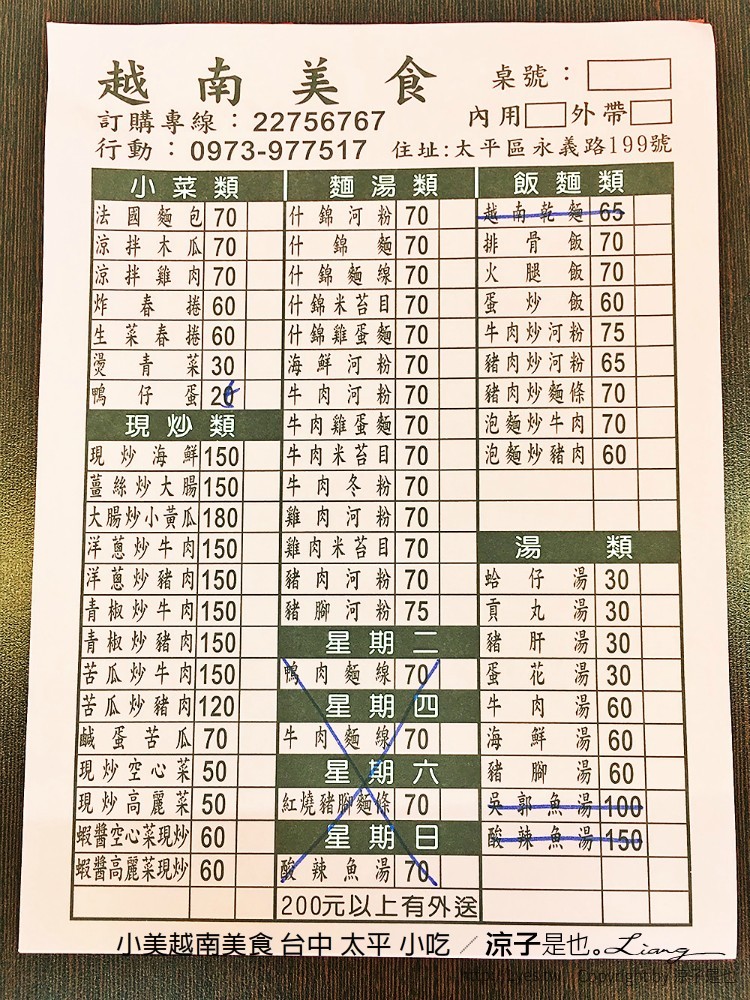 越南美食
桌號：
訂購專線：22756767
內用 外帶
行動：0973-977517 住址:太平區永義路199號
小菜類
法國麵包 70
涼拌木瓜 70
涼拌雞肉 70
炸春捲 60
生菜春捲 60
燙青菜 30
鴨仔蛋
現炒類
現炒海鮮 150
薑絲炒大腸 150
大腸炒小黃瓜 180
洋蔥炒牛肉 150
洋蔥炒豬肉 150
青椒炒牛肉 150
青椒炒豬肉 150
苦瓜炒牛肉 150
苦瓜炒豬肉 120
鹹蛋苦瓜 70
現炒空心菜 50
現炒高麗菜 50
蝦醬空心菜現炒 60
蝦醬高麗菜現炒 60
麵湯類
什錦河粉 70
什錦麵 70
什錦麵線 70
什錦米苔目 70
什錦雞蛋麵 70
海鮮河粉 70
牛肉河粉 70
牛肉雞蛋麵 70
牛肉米苔目 70
牛肉冬粉 70
雞肉河粉 70
雞肉米苔目 70
豬肉河粉 70
豬腳河粉 75
星期二
鴨肉麵線 70
星期四
牛肉麵線 70
星期六
紅燒豬腳麵條 70
星期日
酸辣魚湯 70
200元以上有外送
飯麵類
越南乾麵 65
排骨飯 70
火腿飯 70
蛋炒飯 60
牛肉炒河粉 75
豬肉炒河粉 65
豬肉炒麵條 70
泡麵炒牛肉 70
泡麵炒豬肉 60
湯類
蛤仔湯 30
貢丸湯 30
豬肝湯 30
蛋花湯 30
牛肉湯 60
海鮮湯 60
豬腳湯 60
吳郭魚湯 100
酸辣魚湯 150
小美越南美食 台中 太平 小吃 ／ 涼子是也。Liang